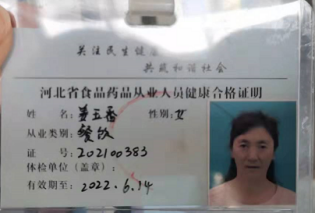 关注民生健康
共筑和谐社会
河北省食品药品从业人员健康合格证明
姓 名: 姜玉香 性别: 女
从业类别: 餐饮
证 号: 202100383
体检单位(盖章):
有效期至: 2022.6.14